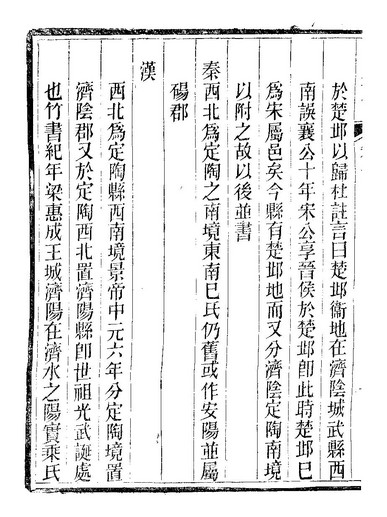 於楚邱以歸杜註言曰楚邱衞地在濟陰城武縣西
南誤襄公十年宋公享晉侯於楚邱卽此時楚邱巳
爲宋屬邑矣今縣有楚邱地而又分濟陰定陶南境
以附之故以後並書
秦西北爲定陶之南境東南巳氏仍舊或作安陽並屬
碭郡
漢
西北爲定陶縣西南境景帝中元六年分定陶境置
濟陰郡又於定陶西北置濟陽縣卽世祖光武誕處
也竹書紀年梁惠成王城濟陽在濟水之陽實乘氏